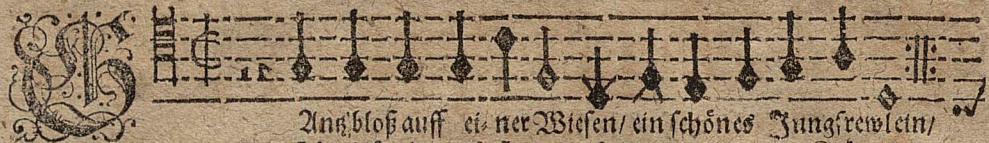 GAntz bloß auff ei⸗ner Wiesen/ ein schönes Jungfrewlein/